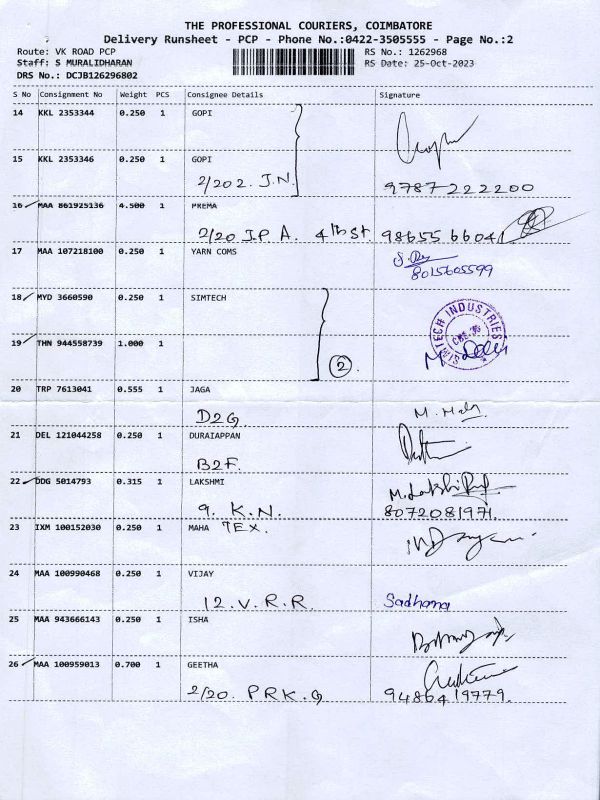 THE PROFESSIONAL COURIERS, COIMBATORE
Delivery Runsheet - PCP - Phone No.:0422-3505555 - Page No.:2
Route: VK ROAD PCP RS No.: 1262968
Staff: S MURALIDHARAN RS Date: 25-Oct-2023
DRS No.: DCJB126296802
S No Consignment No Weight PCS Consignee Details Signature
14 KKL 2353344 0.250 1 GOPI
15 KKL 2353346 0.250 1 GOPI
2/202. J.N. 9787222200
16 MAA 861925136 4.500 1 PREMA
2/20 J.P A. 4th St. 98655 66041
17 MAA 107218100 0.250 1 YARN COMS
8015605599
18 MYD 3660590 0.250 1 SIMTECH
SIMTECH INDUSTRIES
CBE-35
19 THN 944558739 1.000 1
2
20 TRP 7613041 0.555 1 JAGA
D2G
21 DEL 121044258 0.250 1 DURAIAPPAN
B2F.
22 DDG 5014793 0.315 1 LAKSHMI
9. K.N. 8072081971.
23 IXM 100152030 0.250 1 MAHA TEX.
24 MAA 100990468 0.250 1 VIJAY
12. V. R. R. Sadhana
25 MAA 943666143 0.250 1 ISHA
26 MAA 100959013 0.700 1 GEETHA
2/20. PRK. G 9486419779.